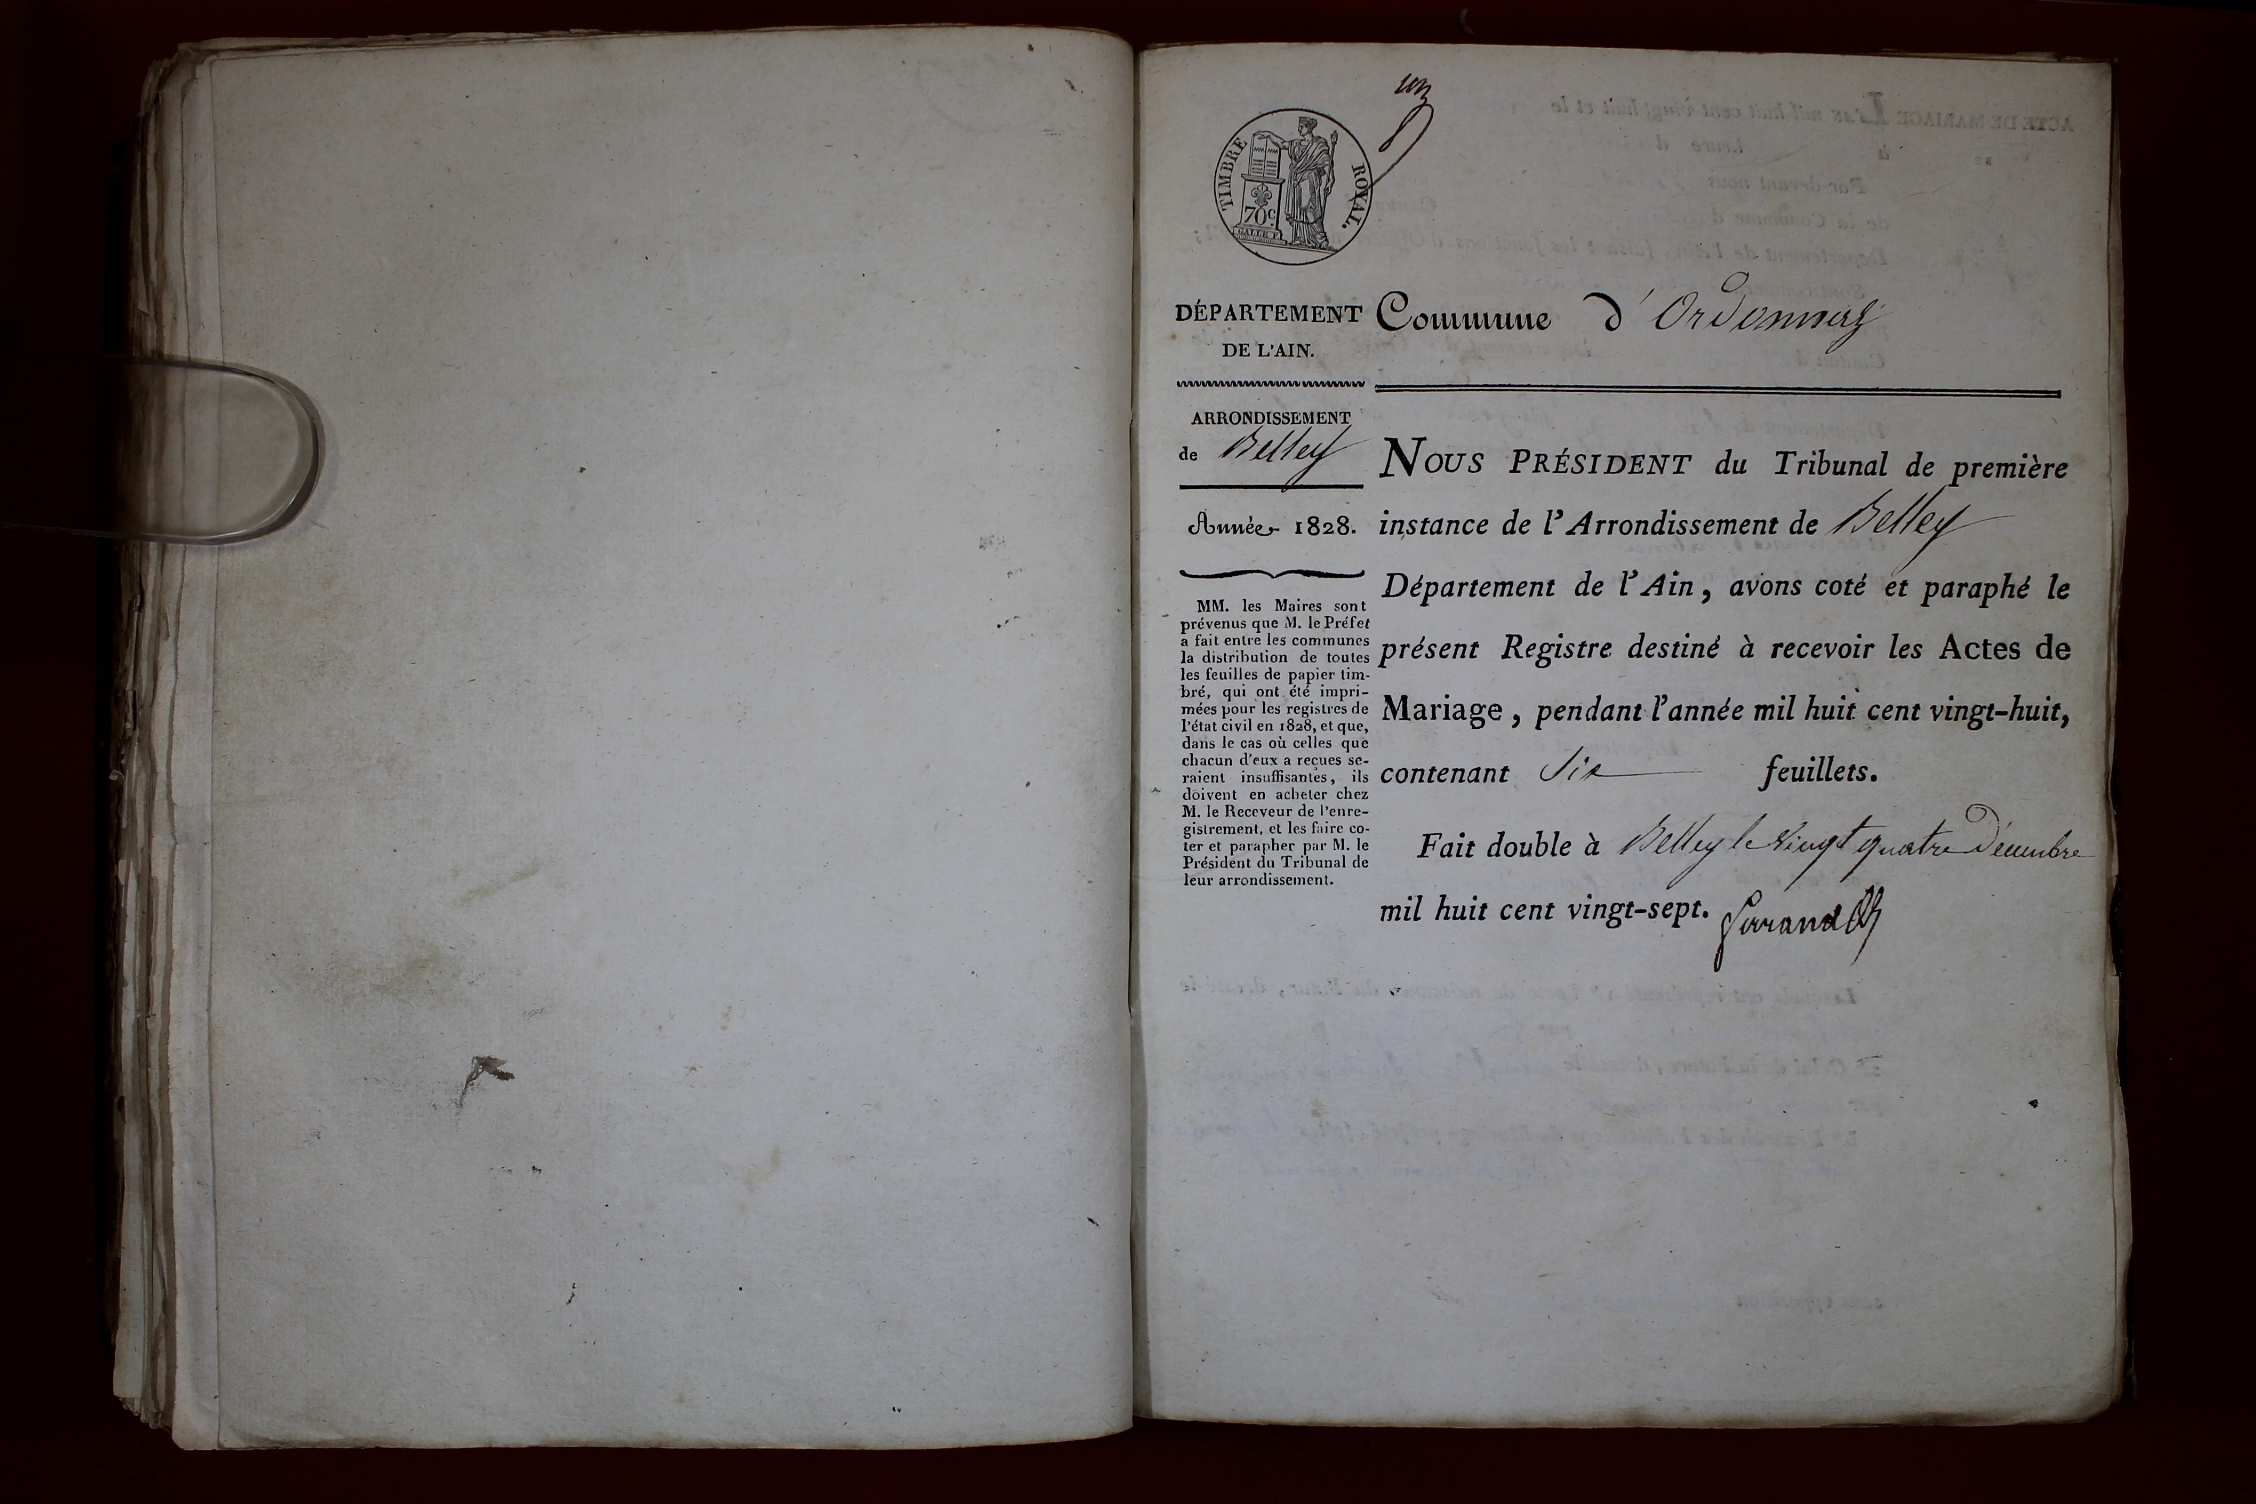 un
TIMBRE ROYAL.
70c.
GALLE F.
DÉPARTEMENT
DE L'AIN.
Commune d'Ordonnas
ARRONDISSEMENT
de Belley
Année 1828.
MM. les Maires sont
prévenus que M. le Préfet
a fait entre les communes
la distribution de toutes
les feuilles de papier tim-
bré, qui ont été impri-
mées pour les registres de
l'état civil en 1828, et que,
dans le cas où celles que
chacun d'eux a reçues se-
raient insuffisantes, ils
doivent en acheter chez
M. le Receveur de l'enre-
gistrement, et les faire co-
ter et parapher par M. le
Président du Tribunal de
leur arrondissement.
NOUS PRÉSIDENT du Tribunal de première
instance de l'Arrondissement de Belley
Département de l'Ain, avons coté et paraphé le
présent Registre destiné à recevoir les Actes de
Mariage, pendant l'année mil huit cent vingt-huit,
contenant Six feuillets.
Fait double à Belley le vingt quatre Décembre
mil huit cent vingt-sept.